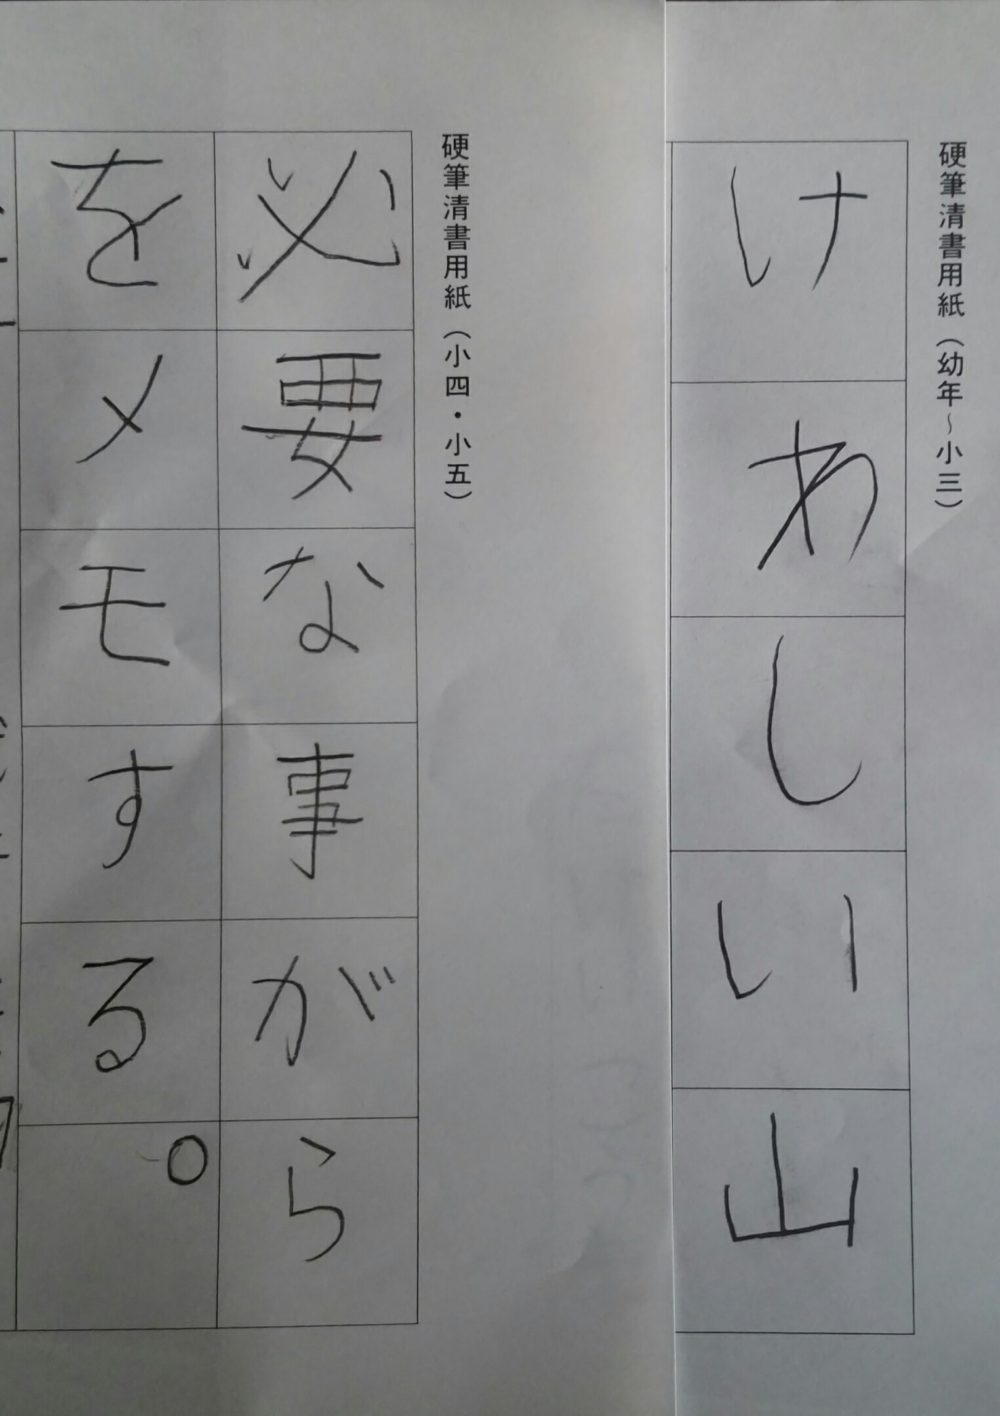 硬筆清書用紙（幼年～小三）
けわしい山
硬筆清書用紙（小四・小五）
必要な事がら
をメモする。